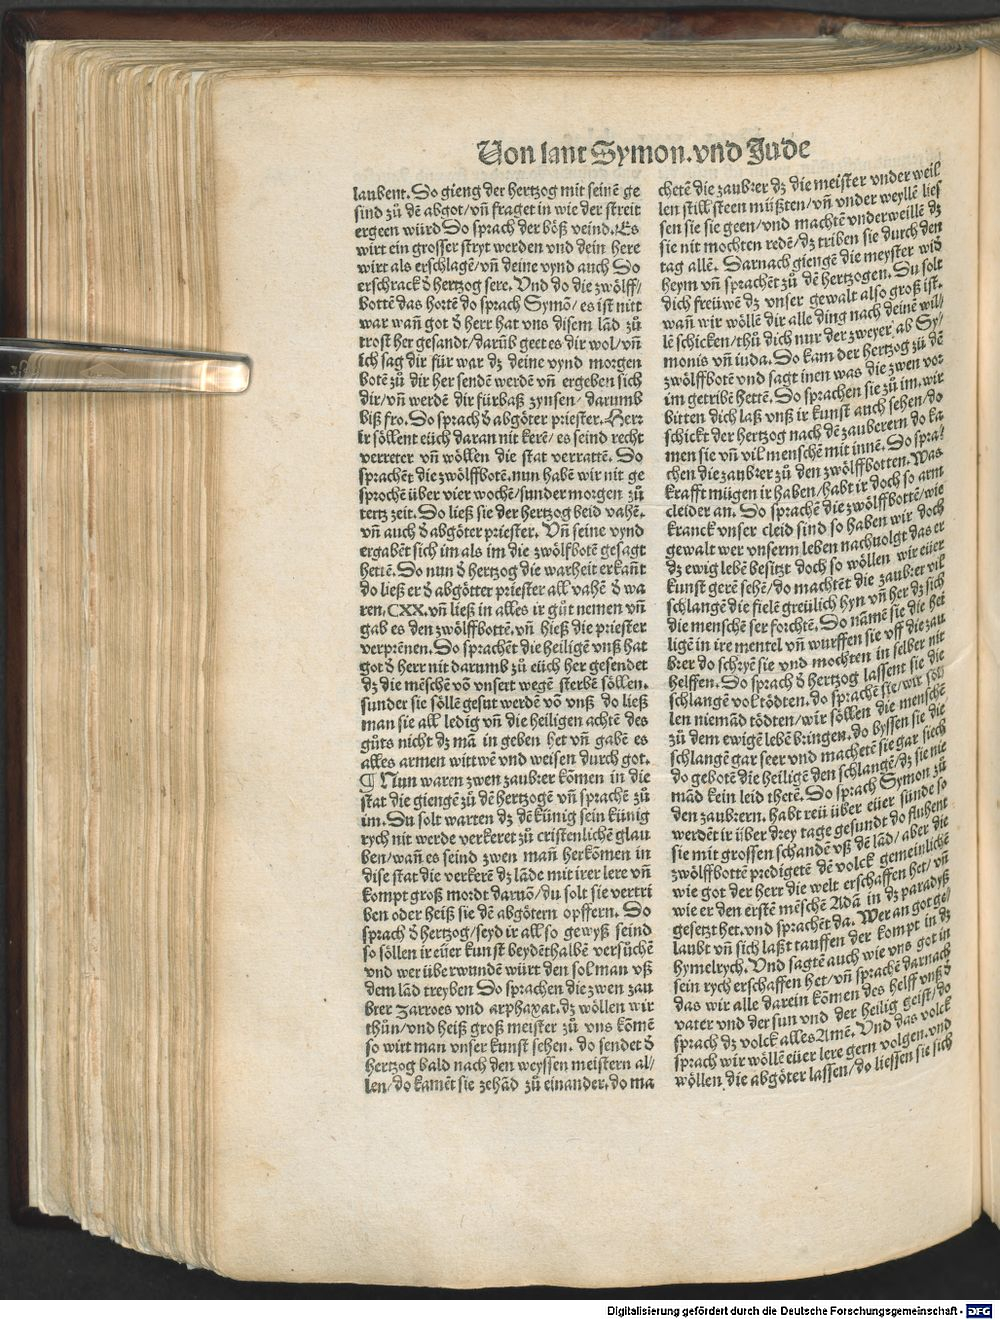 Von sant Symon. vnd Jude
laubent. So gieng der hertzog mit seinē ge
sind zů dē abgot/ vñ fraget in wie der streit
ergeen würd Do sprach der böß veind. Es
wirt ein grosser stryt werden vnd dein here
wirt als erschlagē/ vñ deine vynd auch Do
erschrack d̕ hertzog sere. Vnd do die zwölff/
bottē das hortē do sprach Symō/ es ist nitt
war wañ got d̕ herr hat vns disem lād zů
trost her gesandt/ darūb geet es dir wol/ vñ
ich sag dir für war dz deine vynd morgen
botē zů dir her sendē werdē vñ ergeben sich
dir/ vñ werdē dir fürbaß zynsen/ darumb
biß fro. Do sprach d̕ abgöter priester. Herr
ir söllent eüch daran nit kerē/ es seind recht
verreter vñ wöllen die stat verrattē. Do
sprachēt die zwölffbotē. nun habē wir nit ge
sprochē über vier wochē/ sunder morgen zů
tertz zeit. Do ließ sie der hertzog beid vahē.
vñ auch d̕ abgöter priester. Vñ seine vynd
ergabēt sich im als im die zwölfbotē gesagt
hettē. Do nun d̕ hertzog die warheit erkañt
do ließ er d̕ abgötter priester all vahē d̕ wa
ren. CXX. vñ ließ in alles ir gůt nemen vñ
gab es den zwölffbottē. vñ hieß die priester
verprēnen. Do sprachēt die heiligē vnß hat
got d̕ herr nit darumb zů eüch her gesendet
dz die mēschē vō vnsert wegē sterbē söllen.
sunder sie söllē gesut werdē vō vnß do ließ
man sie all ledig vñ die heiligen achtē des
gůts nicht dz mā in geben het vñ gabē es
alles armen wittwē vnd weisen durch got.
¶ Nun waren zwen zaubrer kōmen in die
stat die giengē zů dē hertzogē vñ sprachē zů
im. Du solt warten dz dē künig sein künig
rych nit werde verkeret zů cristenlichē glau
ben/ wañ es seind zwen mañ herkōmen in
dise stat die verkerē dz lāde mit irer lere vñ
kompt groß mordt darnō/ du solt sie vertri
ben oder heiß sie dē abgötern opffern. Do
sprach d̕ hertzog/ seyd ir all so gewyß seind
so söllen ir eüer kunst beydēthalbē versůchē
vnd wer überwundē würt den sol man vß
dem lād treyben Do sprachen die zwen zau
brer Zarroes vnd arphaxat. dz wöllen wir
thůn/ vnd heiß groß meister zů vns kōmē
so wirt man vnser kunst sehen. do sendet d̕
hertzog bald nach den weyssen meistern al/
len/ do kamēt sie zehād zů einander. do ma
chetē die zaubrer dz die meister vnder weil
len still steen müßten/ vñ vnder weyllē lies
sen sie sie geen/ vnd machtē vnderweillē dz
sie nit mochten redē/ dz triben sie durch den
tag allē. Darnach giengē die meyster wid̕
heym vñ sprachēt zů dē hertzogen. Du solt
dich freüwē dz vnser gewalt also groß ist.
wañ wir wöllē dir alle ding nach deinē wil/
lē schicken/ thů dich nur der zweyer ab Sy/
monis vñ iuda. Do kam der hertzog zů dē
zwölffbotē vnd sagt inen was die zwen vor
im getribē hettē. Do sprachen sie zů im. wir
bitten dich laß vnß ir kunst auch sehen/ do
schickt der hertzog nach dē zauberern do ka
men sie vñ vil menschē mit innē. Do spra/
chen die zaubrer zů den zwölffbotten. Was
krafft mügen ir haben/ habt ir doch so arm
cleider an. Do sprachē die zwölffbottē/ wie
kranck vnser cleid sind so haben wir doch
gewalt wer vnserm leben nachuolgt das er
dz ewig lebē besitzt doch so wöllen wir eüer
kunst gerē sehē/ do machtēt die zaubrer vil
schlangē die fielē greülich hyn vñ her dz sich
die menschē ser forchtē. Do namē sie die hei
ligē in ire mentel vñ wurffen sie vff die zau
brer do schryē sie vnd mochten in selber nit
helffen. Do sprach d̕ hertzog lassent sie die
schlangē vol tödten. do sprachē sie/ wir söl/
len niemād tödten/ wir söllen die menschē
zů dem ewigē lebē bringen. do byssen sie die
schlangē gar seer vnd machetē sie gar siech
do gebotē die heiligē den schlangē/ dz sie nie
mād kein leid thetē. Do sprach Symon zů
den zaubrern. habt reü über eüer sünde so
werdēt ir über drey tage gesundt do fluhent
sie mit grossen schandē vß dē lād/ aber die
zwölffbottē predigetē dē volck gemeinlichē
wie got der herr die welt erschaffen het/ vñ
wie er den erstē mēschē Adā in dz paradyß
gesetzt het. vnd sprachēt da. Wer an got ge/
laubt vñ sich laßt tauffen der kompt in dz
hymelrych. Vnd sagtē auch wie vns got in
sein rych erschaffen het/ vñ sprachē darnach
das wir alle darein kōmen des helff vnß d̕
vater vnd der sun vnd der heilig geist/ do
sprach dz volck alles Amē. Vnd das volck
sprach wir wöllē eüer lere gern volgen. vnd
wöllen die abgöter lassen/ do liessen sie sich
Digitalisierung gefördert durch die Deutsche Forschungsgemeinschaft - DFG